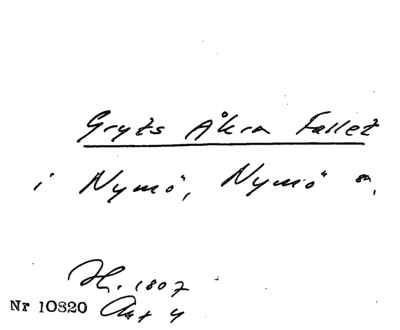 Gryts Åkra Fallet
i Nymö, Nymö sn,
H. 1807
Nr 10820 Akt 4